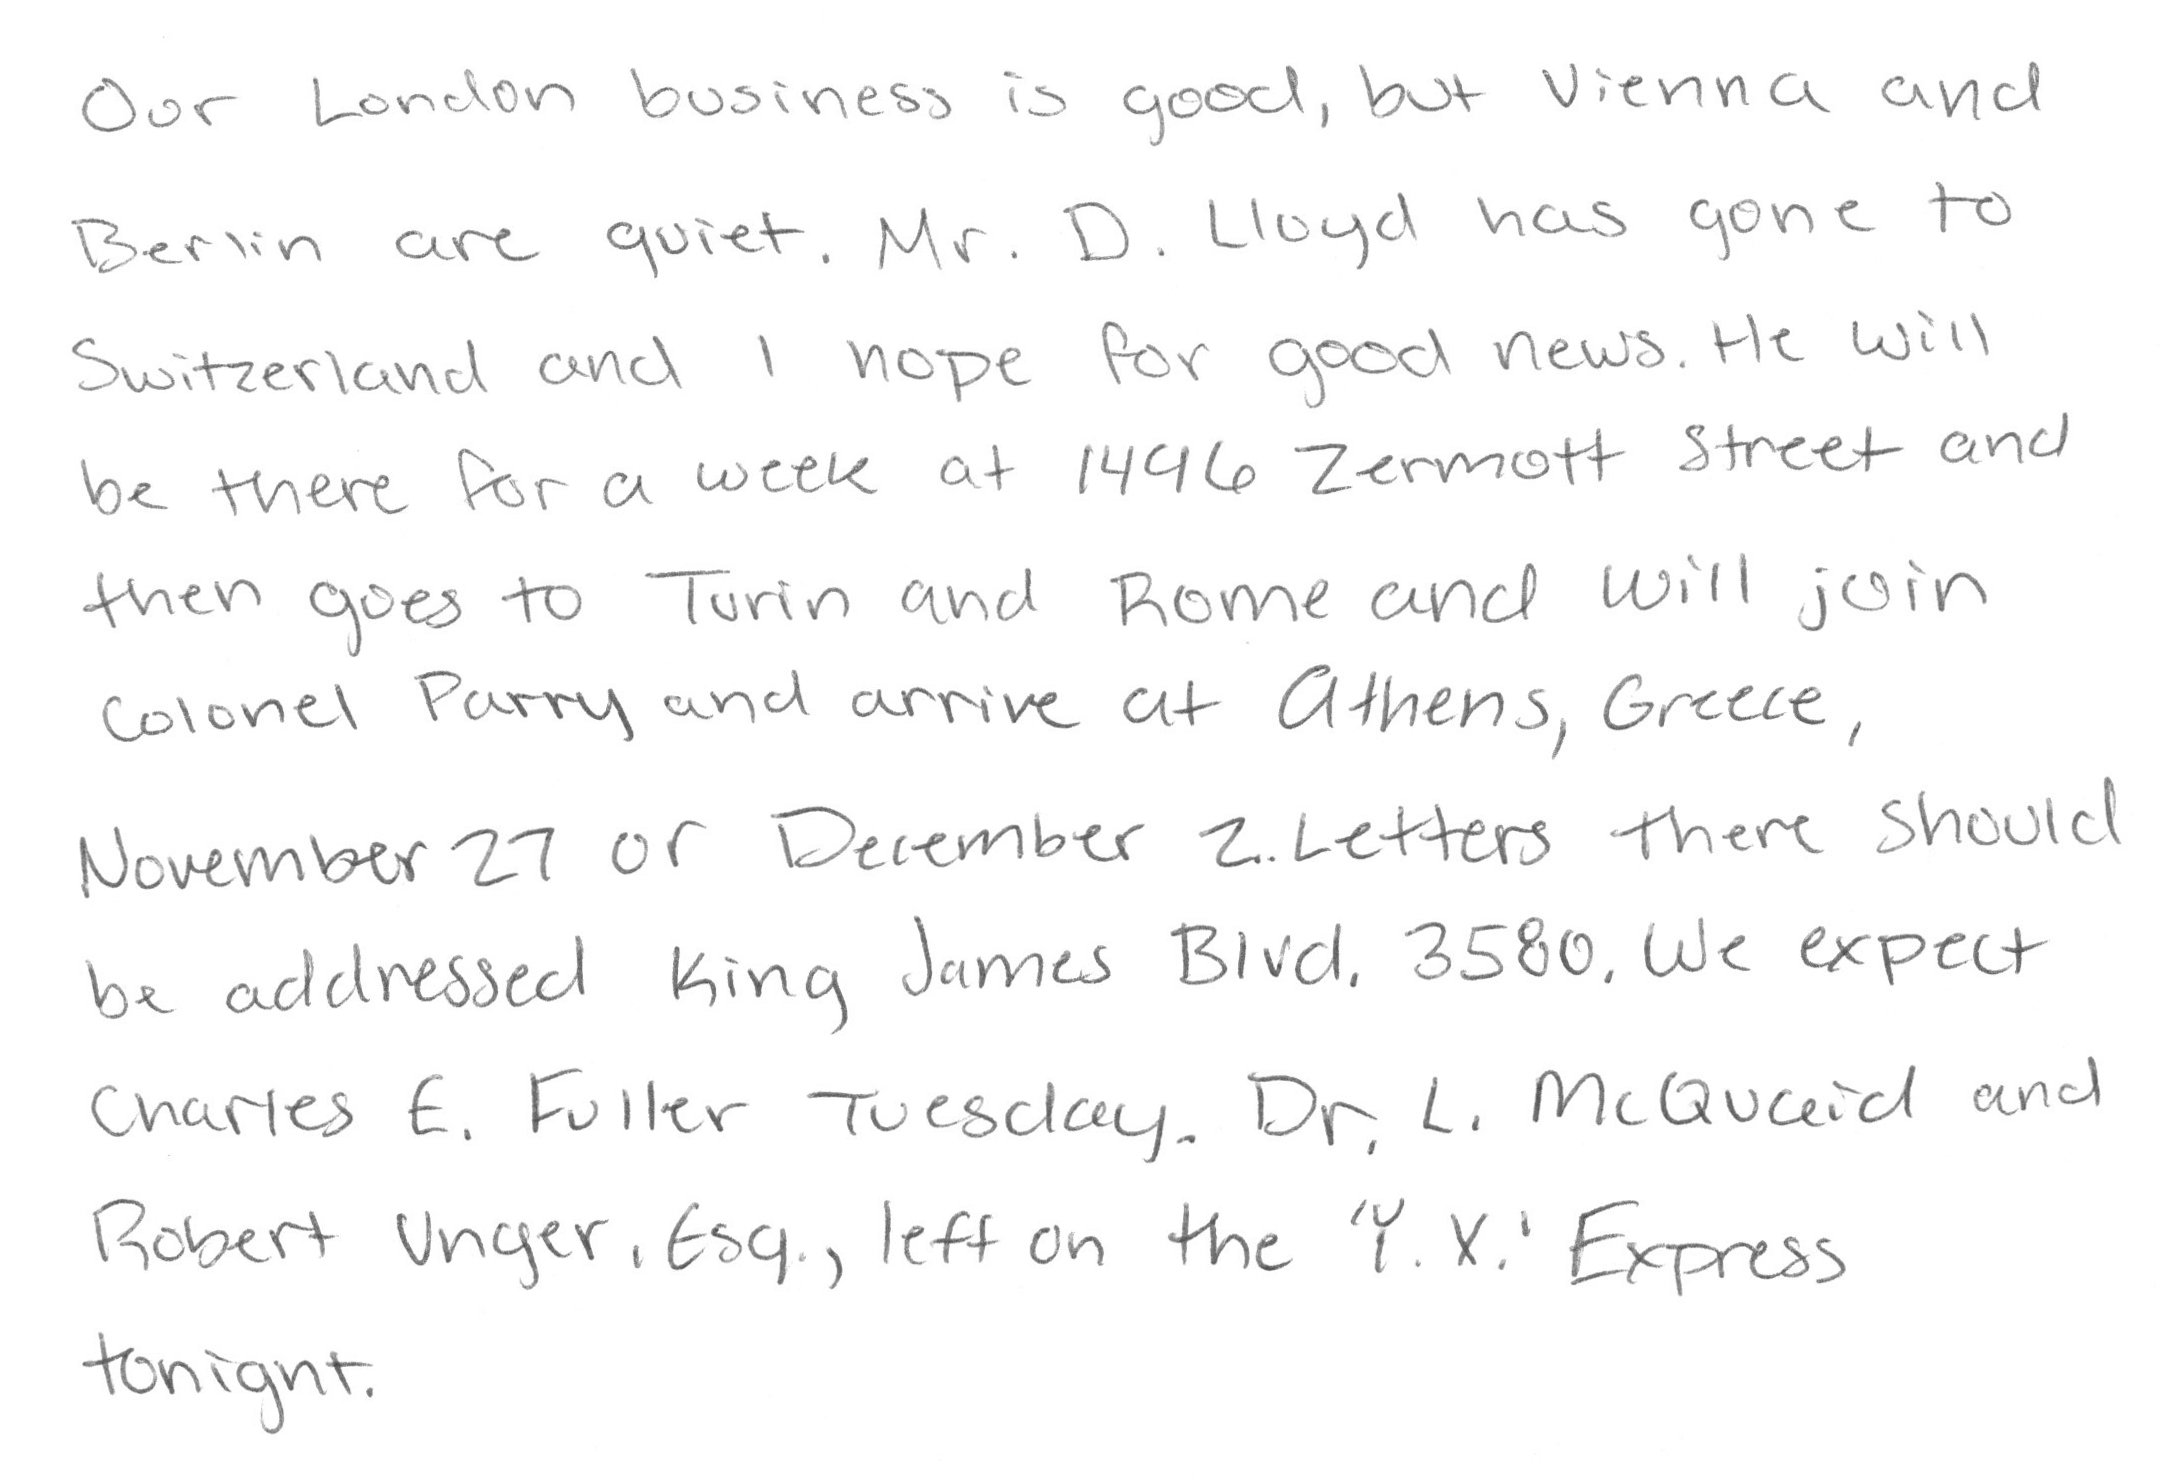 Our London business is good, but Vienna and
Berlin are quiet. Mr. D. Lloyd has gone to
Switzerland and I hope for good news. He will
be there for a week at 1496 Zermott Street and
then goes to Turin and Rome and will join
Colonel Parry and arrive at Athens, Greece,
November 27 or December 2. Letters there should
be addressed King James Blvd. 3580. We expect
Charles E. Fuller Tuesday. Dr. L. McQuaid and
Robert Unger, Esq., left on the 'Y. X.' Express
tonight.